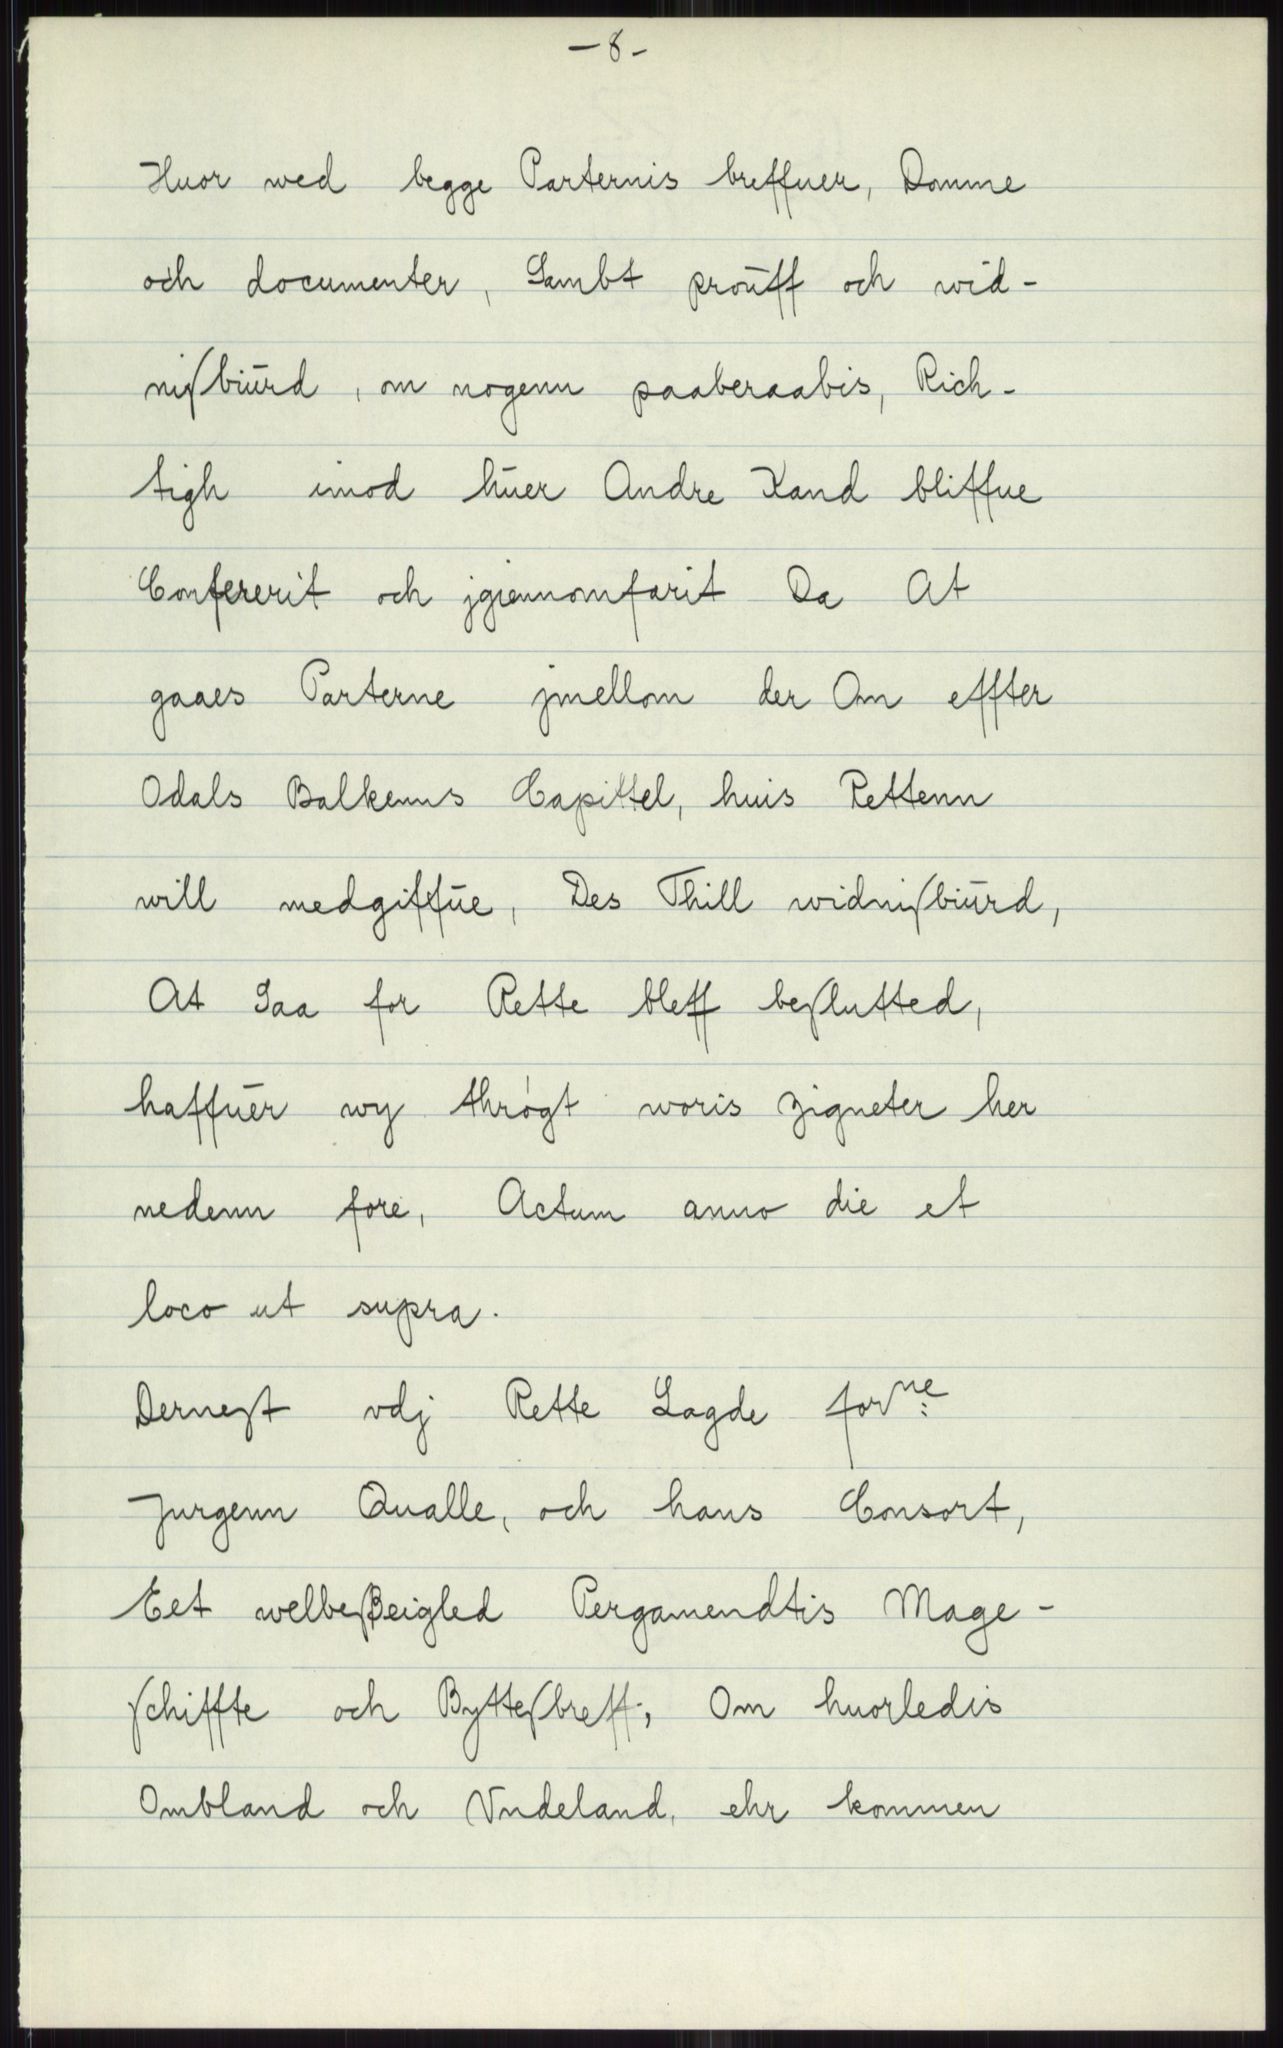 - 8 -
Huor wed begge Parternis breffuer, Domme
och documenter, Sambt prouff och wid-
niſbiurd, om nogenn paaberaabis, Rich-
tigh imod huer Andre Kand bliffue
Confererit och jgiennomfarit Da At
gaaes Parterne jmellom der Om effter
Odals Balkenns Capittel, huis Rettenn
will medgiffue, Des Thill widniſbiurd,
At Saa for Rette bleff beſlutted,
haffuer wy thrøgt woris zigneter her
nedenn fore, Actum anno die et
loco ut supra.
Derneſt vdj Rette Lagde for^ne:
Jurgenn Qualle, och hans Consort,
Eet welbeſeigled Pergamendtis Mage-
ſchiffte och Bytteſbreff, Om huorledis
Ombland och Vndeland, ehr kommen